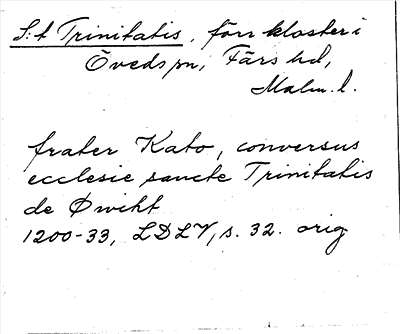 S:t Trinitatis, förr kloster i
Öveds sn, Färs hd,
Malm. l.
frater Kato, conversus
ecclesie sancte Trinitatis
de Øwiht
1200-33, LDLV, s. 32. orig